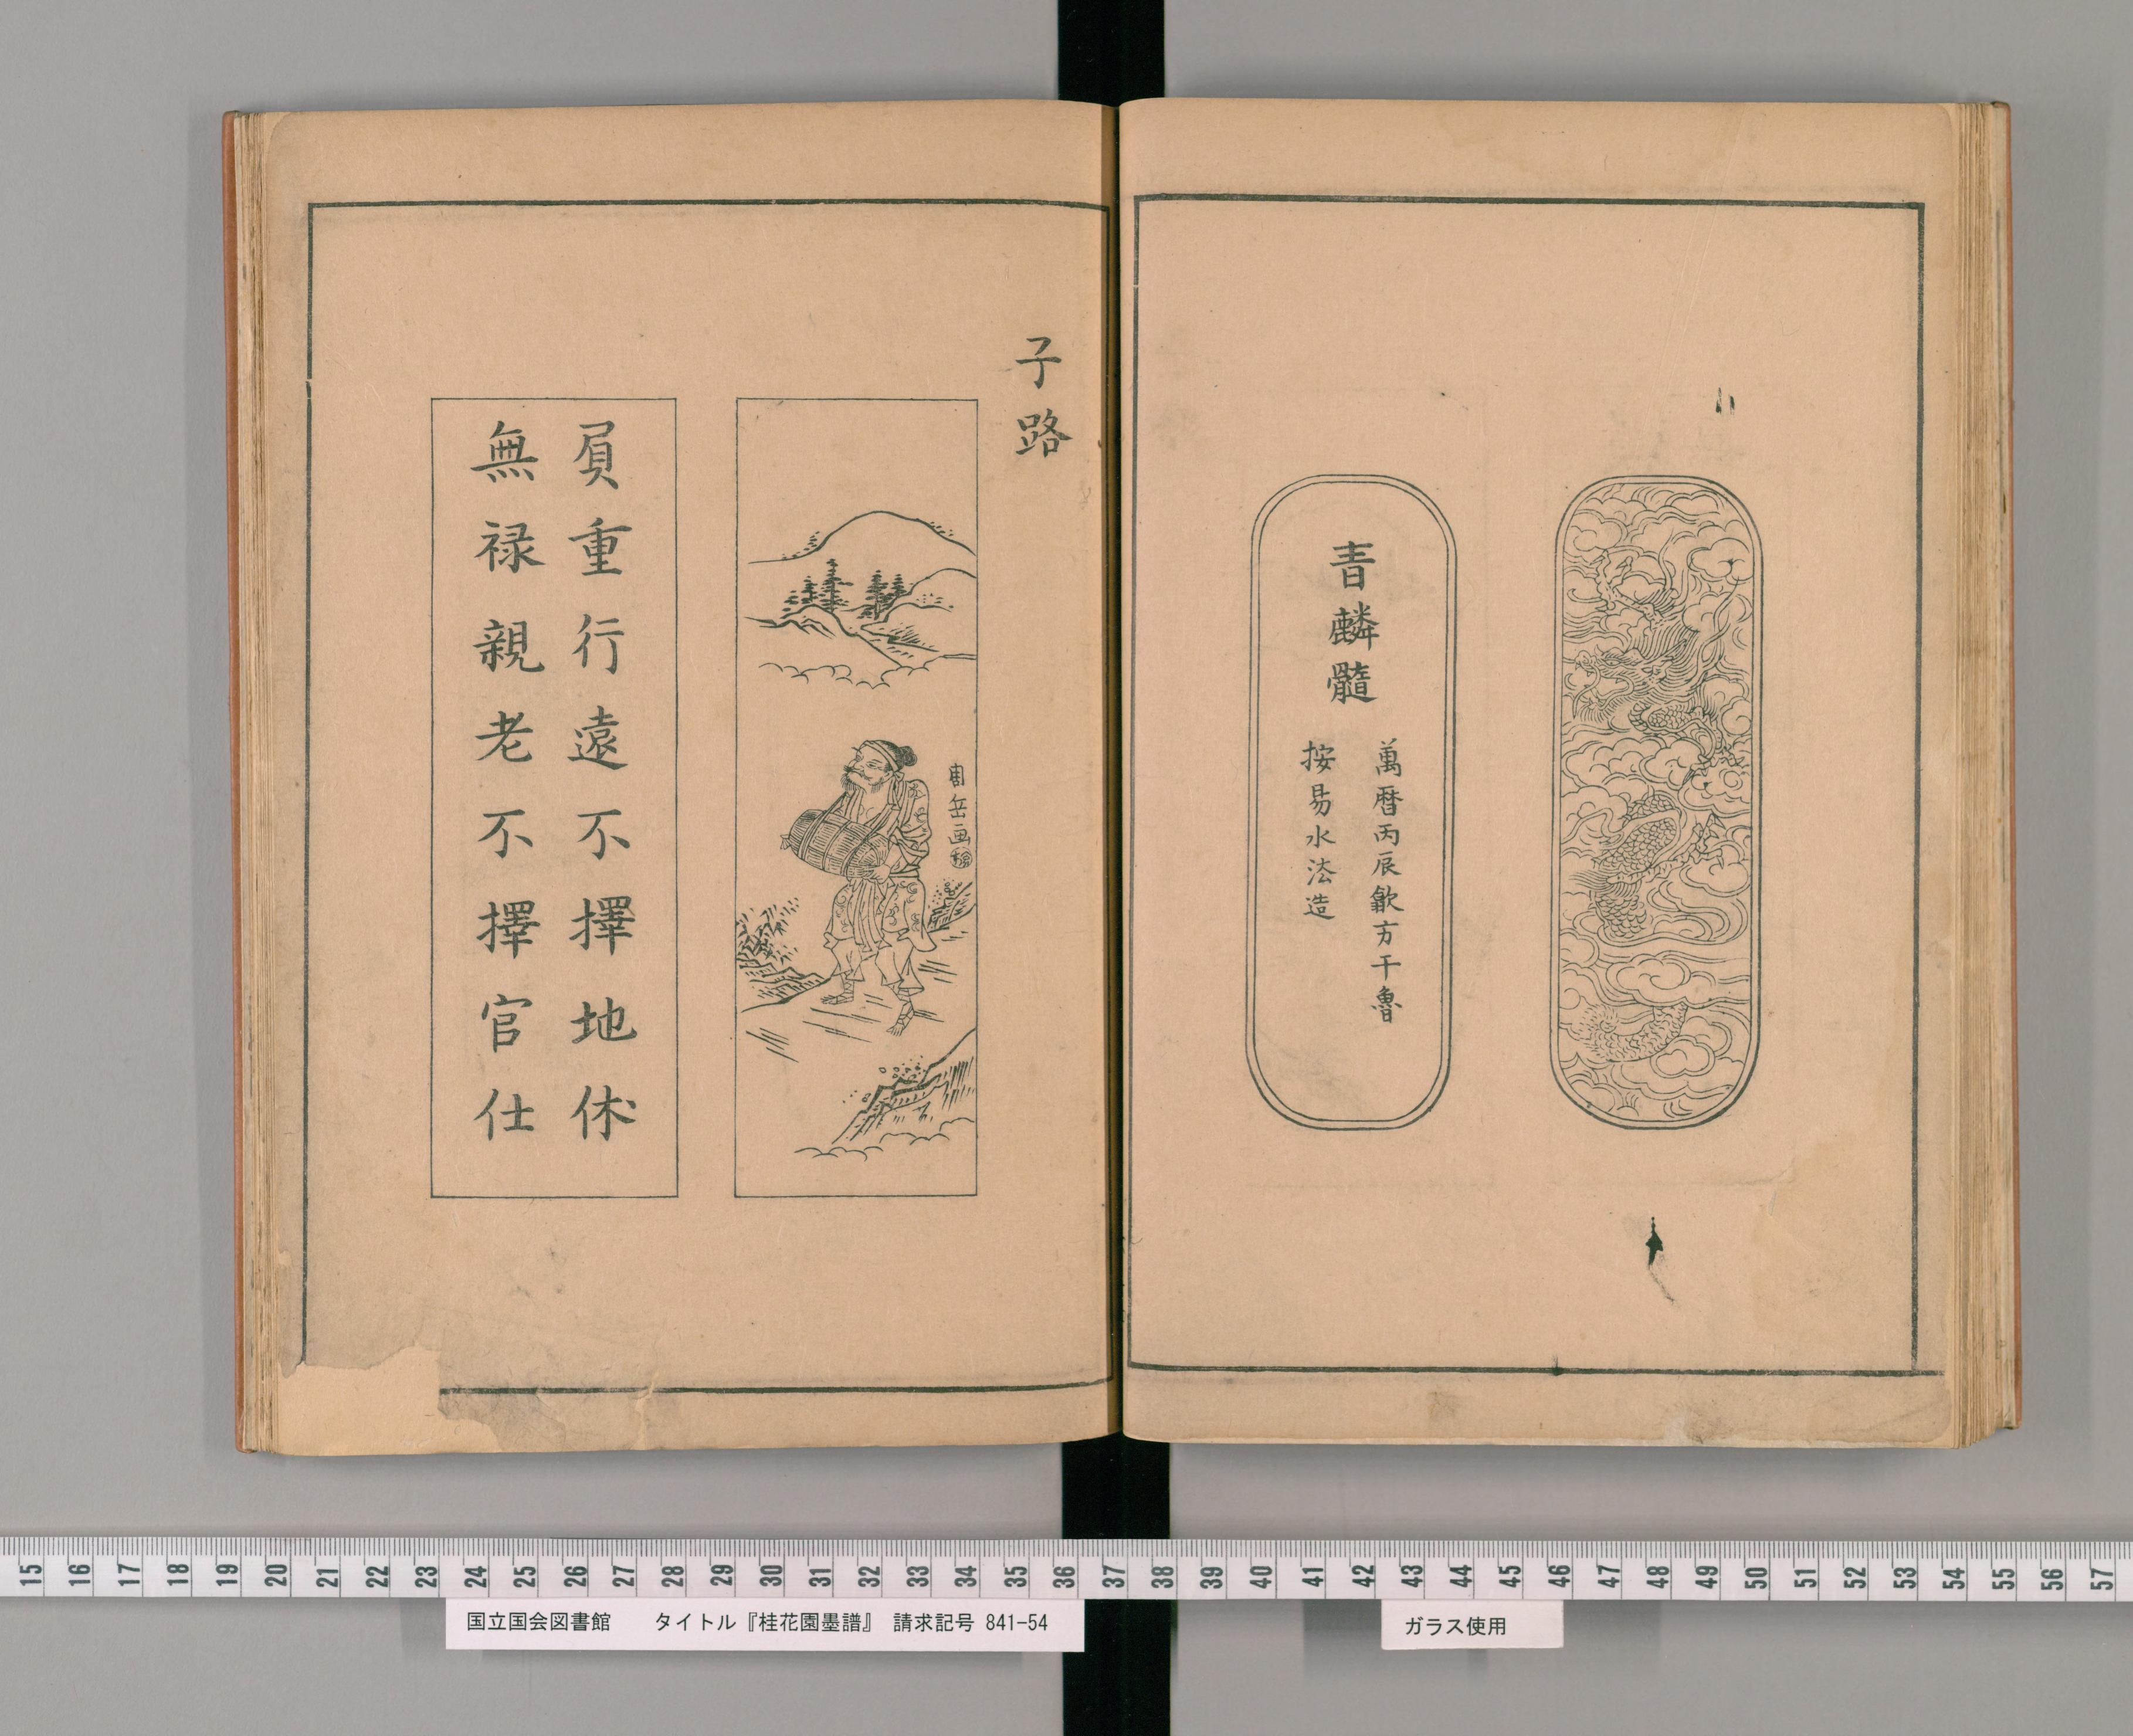 青麟髓
萬暦丙辰歙方于魯
按易水法造
子路
周岳画
負重行遠不擇地休
無禄親老不擇官仕
15 16 17 18 19 20 21 22 23 24 25 26 27 28 29 30 31 32 33 34 35 36 37 38 39 40 41 42 43 44 45 46 47 48 49 50 51 52 53 54 55 56 57
国立国会図書館 タイトル『桂花園墨譜』 請求記号 841-54
ガラス使用